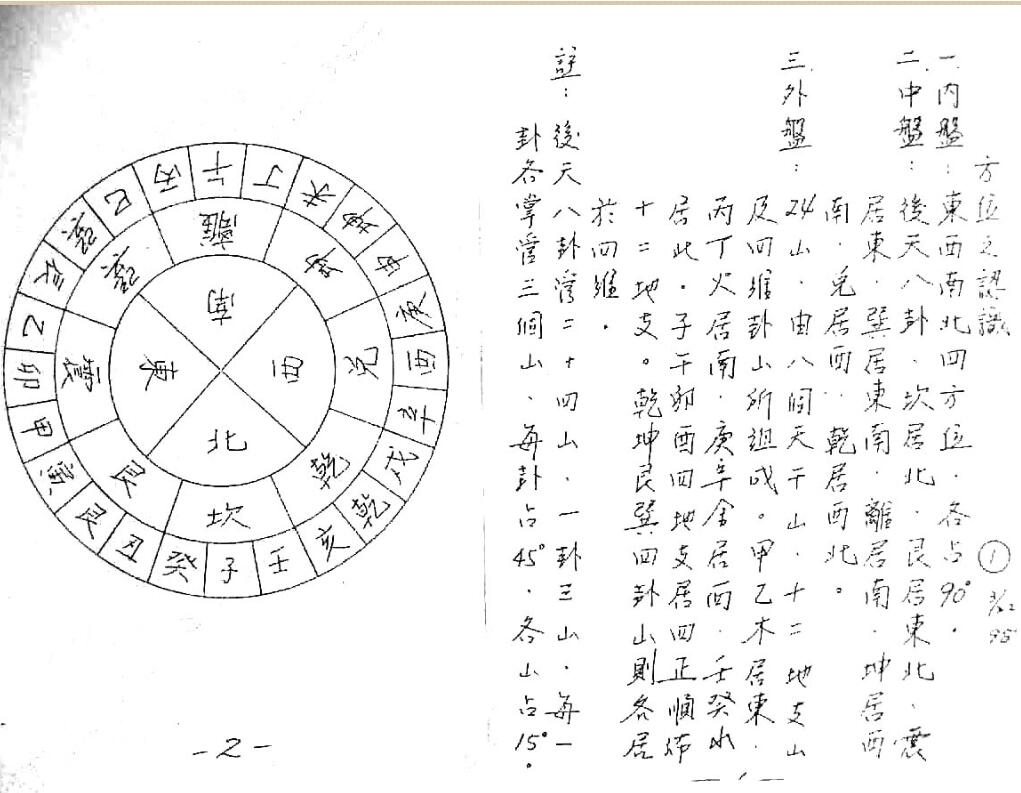 方位之認識
① 3/12 95
一.內盤:東西南北四方位.各占90°.
二.中盤:後天八卦.坎居北.艮居東北.震
居東.巽居東南.離居南.坤居西
南.兌居西.乾居西北。
三.外盤:24山.由八個天干山.十二地支山
及四維卦山所組成。甲乙木居東.
丙丁火居南.庚辛金居西.壬癸水
居北.子午卯酉四地支居四正順佈
十二地支。乾坤艮巽四卦山則各居
於四維.
註:後天八卦管二十四山.一卦三山.每一
卦各掌管三個山.每卦占45°.各山占15°.
南
西
北
東
離
坤
兌
乾
坎
艮
震
巽
午
丁
未
坤
申
庚
酉
辛
戌
乾
亥
壬
子
癸
丑
艮
寅
甲
卯
乙
辰
巽
巳
丙
-2-